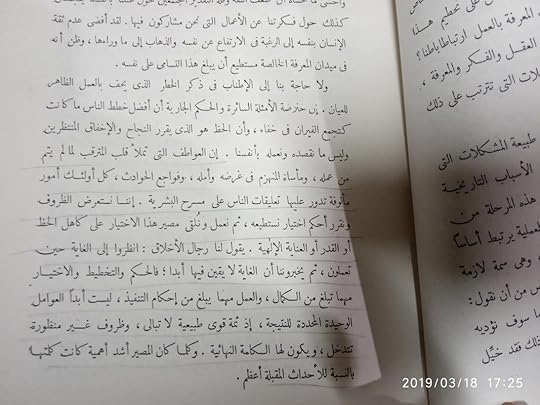 كذلك حول فكرتنا عن الأعمال التى نحن مشاركون فيها . لقد أفضى عدم ثقة
الإنسان بنفسه إلى الرغبة فى الارتفاع عن نفسه والذهاب إلى ما وراءها ، وظن أنه
فى ميدان المعرفة الخالصة مستطيع أن يبلغ هذا التسامى على نفسه .
ولا حاجة بنا إلى الإطناب فى ذكر الخطر الذى يحف بالعمل الظاهر
للعيان . إن الأمثلة السائرة والحكم الجارية أن أفضل خطط الناس ما كانت
كتجمع الفيران فى خفاء ، وأن الحظ هو الذى يقرر النجاح والإخفاق المنتظرين
وليس ما نقصده ونعمله بأنفسنا . إن العواطف التى تملأ قلب المترقب لما لم يتم
من عمله ، ومأساة المنهزم فى غرضه وأمله ، وفواجع الحوادث ، كل أولئك أمور
مألوفة تدور عليها تعليقات الناس على مسرح البشرية . إننا نستعرض الظروف
ونقرر أحكم اختيار نستطيعه ، ثم نعمل ونلقى مصير هذا الاختيار على كاهل الحظ
أو القدر أو العناية الإلهية . يقول لنا رجال الأخلاق : انظروا إلى الغاية حين
تعملون ، ثم يخبروننا أن الغاية لا يقين فيها أبدا ؛ فالحكم والتخطيط والاختيار
مهما تبلغ من الكمال ، والعمل مهما يبلغ من إحكام التنفيذ ، ليست أبداً العوامل
الوحيدة المحددة للنتيجة ، إذ ثمة قوى طبيعية لا تبالى ، وظروف غير منظورة
تتدخل ، ويكون لها الكلمة النهائية . وكلما كان المصير أشد أهمية كانت كلمتها
بالنسبة للأحداث المقبلة أعظم .
على تحطيم هذا
المعرفة بالعمل ارتباطا باطنا؟
العقل والفكر والمعرفة ،
التى تترتب على ذلك
طبيعة المشكلات التى
الأسباب التاريخية
هذه المرحلة من
يرتبط أساساً
وهى سمة لازمة
من أن نقول :
سوف نؤديه
فقد خيِّل
2019/03/18 17:25